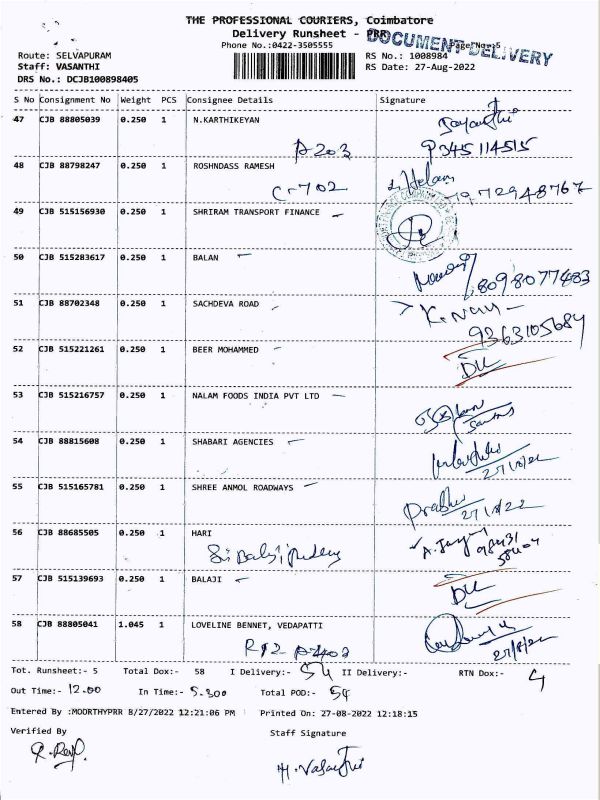 THE PROFESSIONAL COURIERS, Coimbatore
Delivery Runsheet - PRR
DOCUMENT DELIVERY
Phone No.:0422-3505555
Page No: 5
Route: SELVAPURAM
RS No.: 1008984
Staff: VASANTHI
RS Date: 27-Aug-2022
DRS No.: DCJB100898405
S No Consignment No Weight PCS Consignee Details Signature
47 CJB 88805039 0.250 1 N.KARTHIKEYAN
A-203 9345114515
48 CJB 88798247 0.250 1 ROSHNDASS RAMESH
C-702
49 CJB 515156930 0.250 1 SHRIRAM TRANSPORT FINANCE
50 CJB 515283617 0.250 1 BALAN
8098077483
51 CJB 88702348 0.250 1 SACHDEVA ROAD
9363105684
52 CJB 515221261 0.250 1 BEER MOHAMMED
DL
53 CJB 515216757 0.250 1 NALAM FOODS INDIA PVT LTD
54 CJB 88815608 0.250 1 SHABARI AGENCIES
55 CJB 515165781 0.250 1 SHREE ANMOL ROADWAYS
Prabhu
56 CJB 88685505 0.250 1 HARI
57 CJB 515139693 0.250 1 BALAJI
DL
58 CJB 88805041 1.045 1 LOVELINE BENNET, VEDAPATTI
27/8/22
Tot. Runsheet:- 5 Total Dox:- 58 I Delivery:- 54 II Delivery:- RTN Dox:- 4
Out Time:- 12.00 In Time:- 5.300 Total POD:- 54
Entered By :MOORTHYPRR 8/27/2022 12:21:06 PM Printed On: 27-08-2022 12:18:15
Verified By Staff Signature
M. Vasanthi